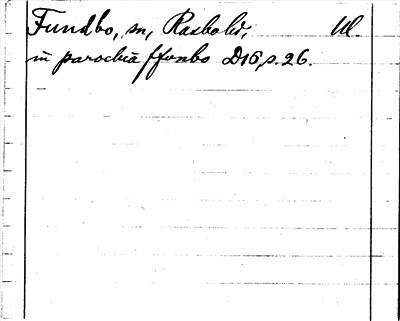 Fundbo, sn, Rasbo hd, Ul.
in parochia ffonbo D16, s. 26.